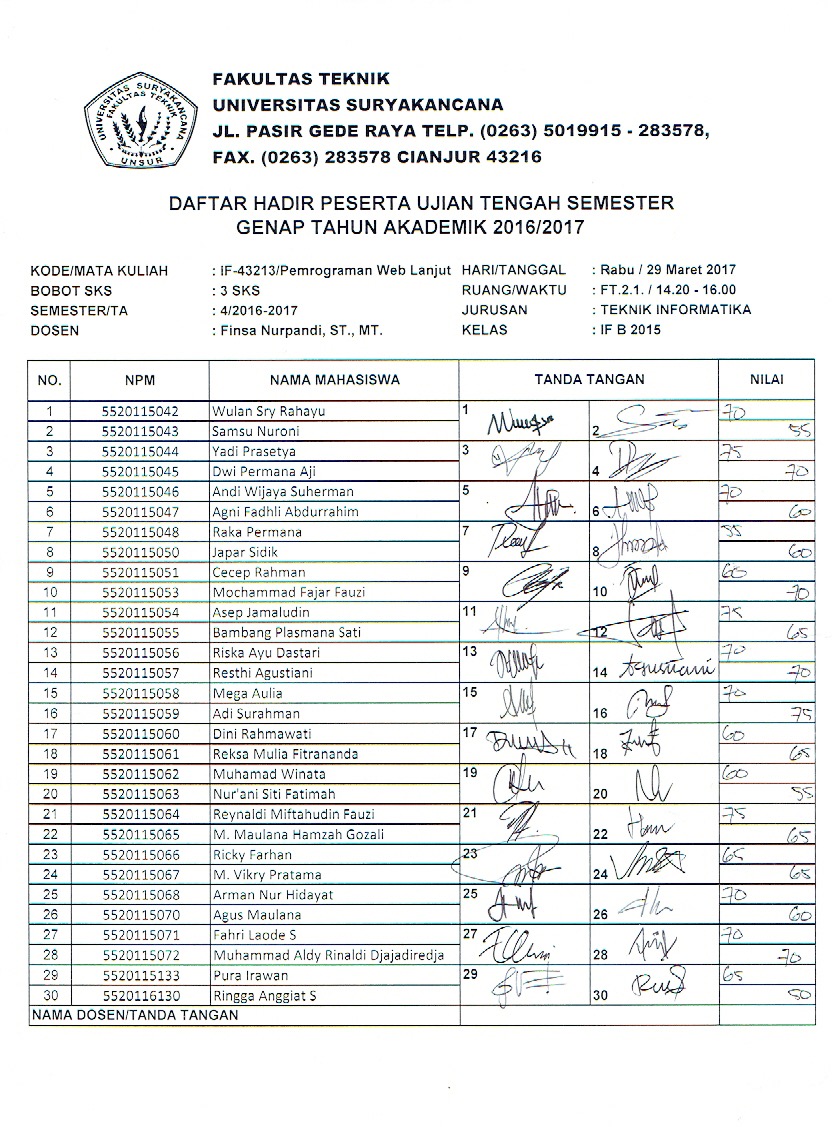 UNIVERSITAS SURYAKANCANA
FAKULTAS TEKNIK
UNSUR
FAKULTAS TEKNIK
UNIVERSITAS SURYAKANCANA
JL. PASIR GEDE RAYA TELP. (0263) 5019915 - 283578,
FAX. (0263) 283578 CIANJUR 43216
DAFTAR HADIR PESERTA UJIAN TENGAH SEMESTER
GENAP TAHUN AKADEMIK 2016/2017
KODE/MATA KULIAH : IF-43213/Pemrograman Web Lanjut HARI/TANGGAL : Rabu / 29 Maret 2017
BOBOT SKS : 3 SKS RUANG/WAKTU : FT.2.1. / 14.20 - 16.00
SEMESTER/TA : 4/2016-2017 JURUSAN : TEKNIK INFORMATIKA
DOSEN : Finsa Nurpandi, ST., MT. KELAS : IF B 2015
NO. NPM NAMA MAHASISWA TANDA TANGAN NILAI
1 5520115042 Wulan Sry Rahayu 1 70
2 5520115043 Samsu Nuroni 2 55
3 5520115044 Yadi Prasetya 3 75
4 5520115045 Dwi Permana Aji 4 70
5 5520115046 Andi Wijaya Suherman 5 70
6 5520115047 Agni Fadhli Abdurrahim 6 60
7 5520115048 Raka Permana 7 55
8 5520115050 Japar Sidik 8 60
9 5520115051 Cecep Rahman 9 60
10 5520115053 Mochammad Fajar Fauzi 10 70
11 5520115054 Asep Jamaludin 11 75
12 5520115055 Bambang Plasmana Sati 12 65
13 5520115056 Riska Ayu Dastari 13 70
14 5520115057 Resthi Agustiani 14 Agustiani 70
15 5520115058 Mega Aulia 15 70
16 5520115059 Adi Surahman 16 75
17 5520115060 Dini Rahmawati 17 60
18 5520115061 Reksa Mulia Fitrananda 18 65
19 5520115062 Muhamad Winata 19 60
20 5520115063 Nur'ani Siti Fatimah 20 55
21 5520115064 Reynaldi Miftahudin Fauzi 21 75
22 5520115065 M. Maulana Hamzah Gozali 22 65
23 5520115066 Ricky Farhan 23 65
24 5520115067 M. Vikry Pratama 24 65
25 5520115068 Arman Nur Hidayat 25 70
26 5520115070 Agus Maulana 26 60
27 5520115071 Fahri Laode S 27 70
28 5520115072 Muhammad Aldy Rinaldi Djajadiredja 28 70
29 5520115133 Pura Irawan 29 65
30 5520116130 Ringga Anggiat S 30 50
NAMA DOSEN/TANDA TANGAN